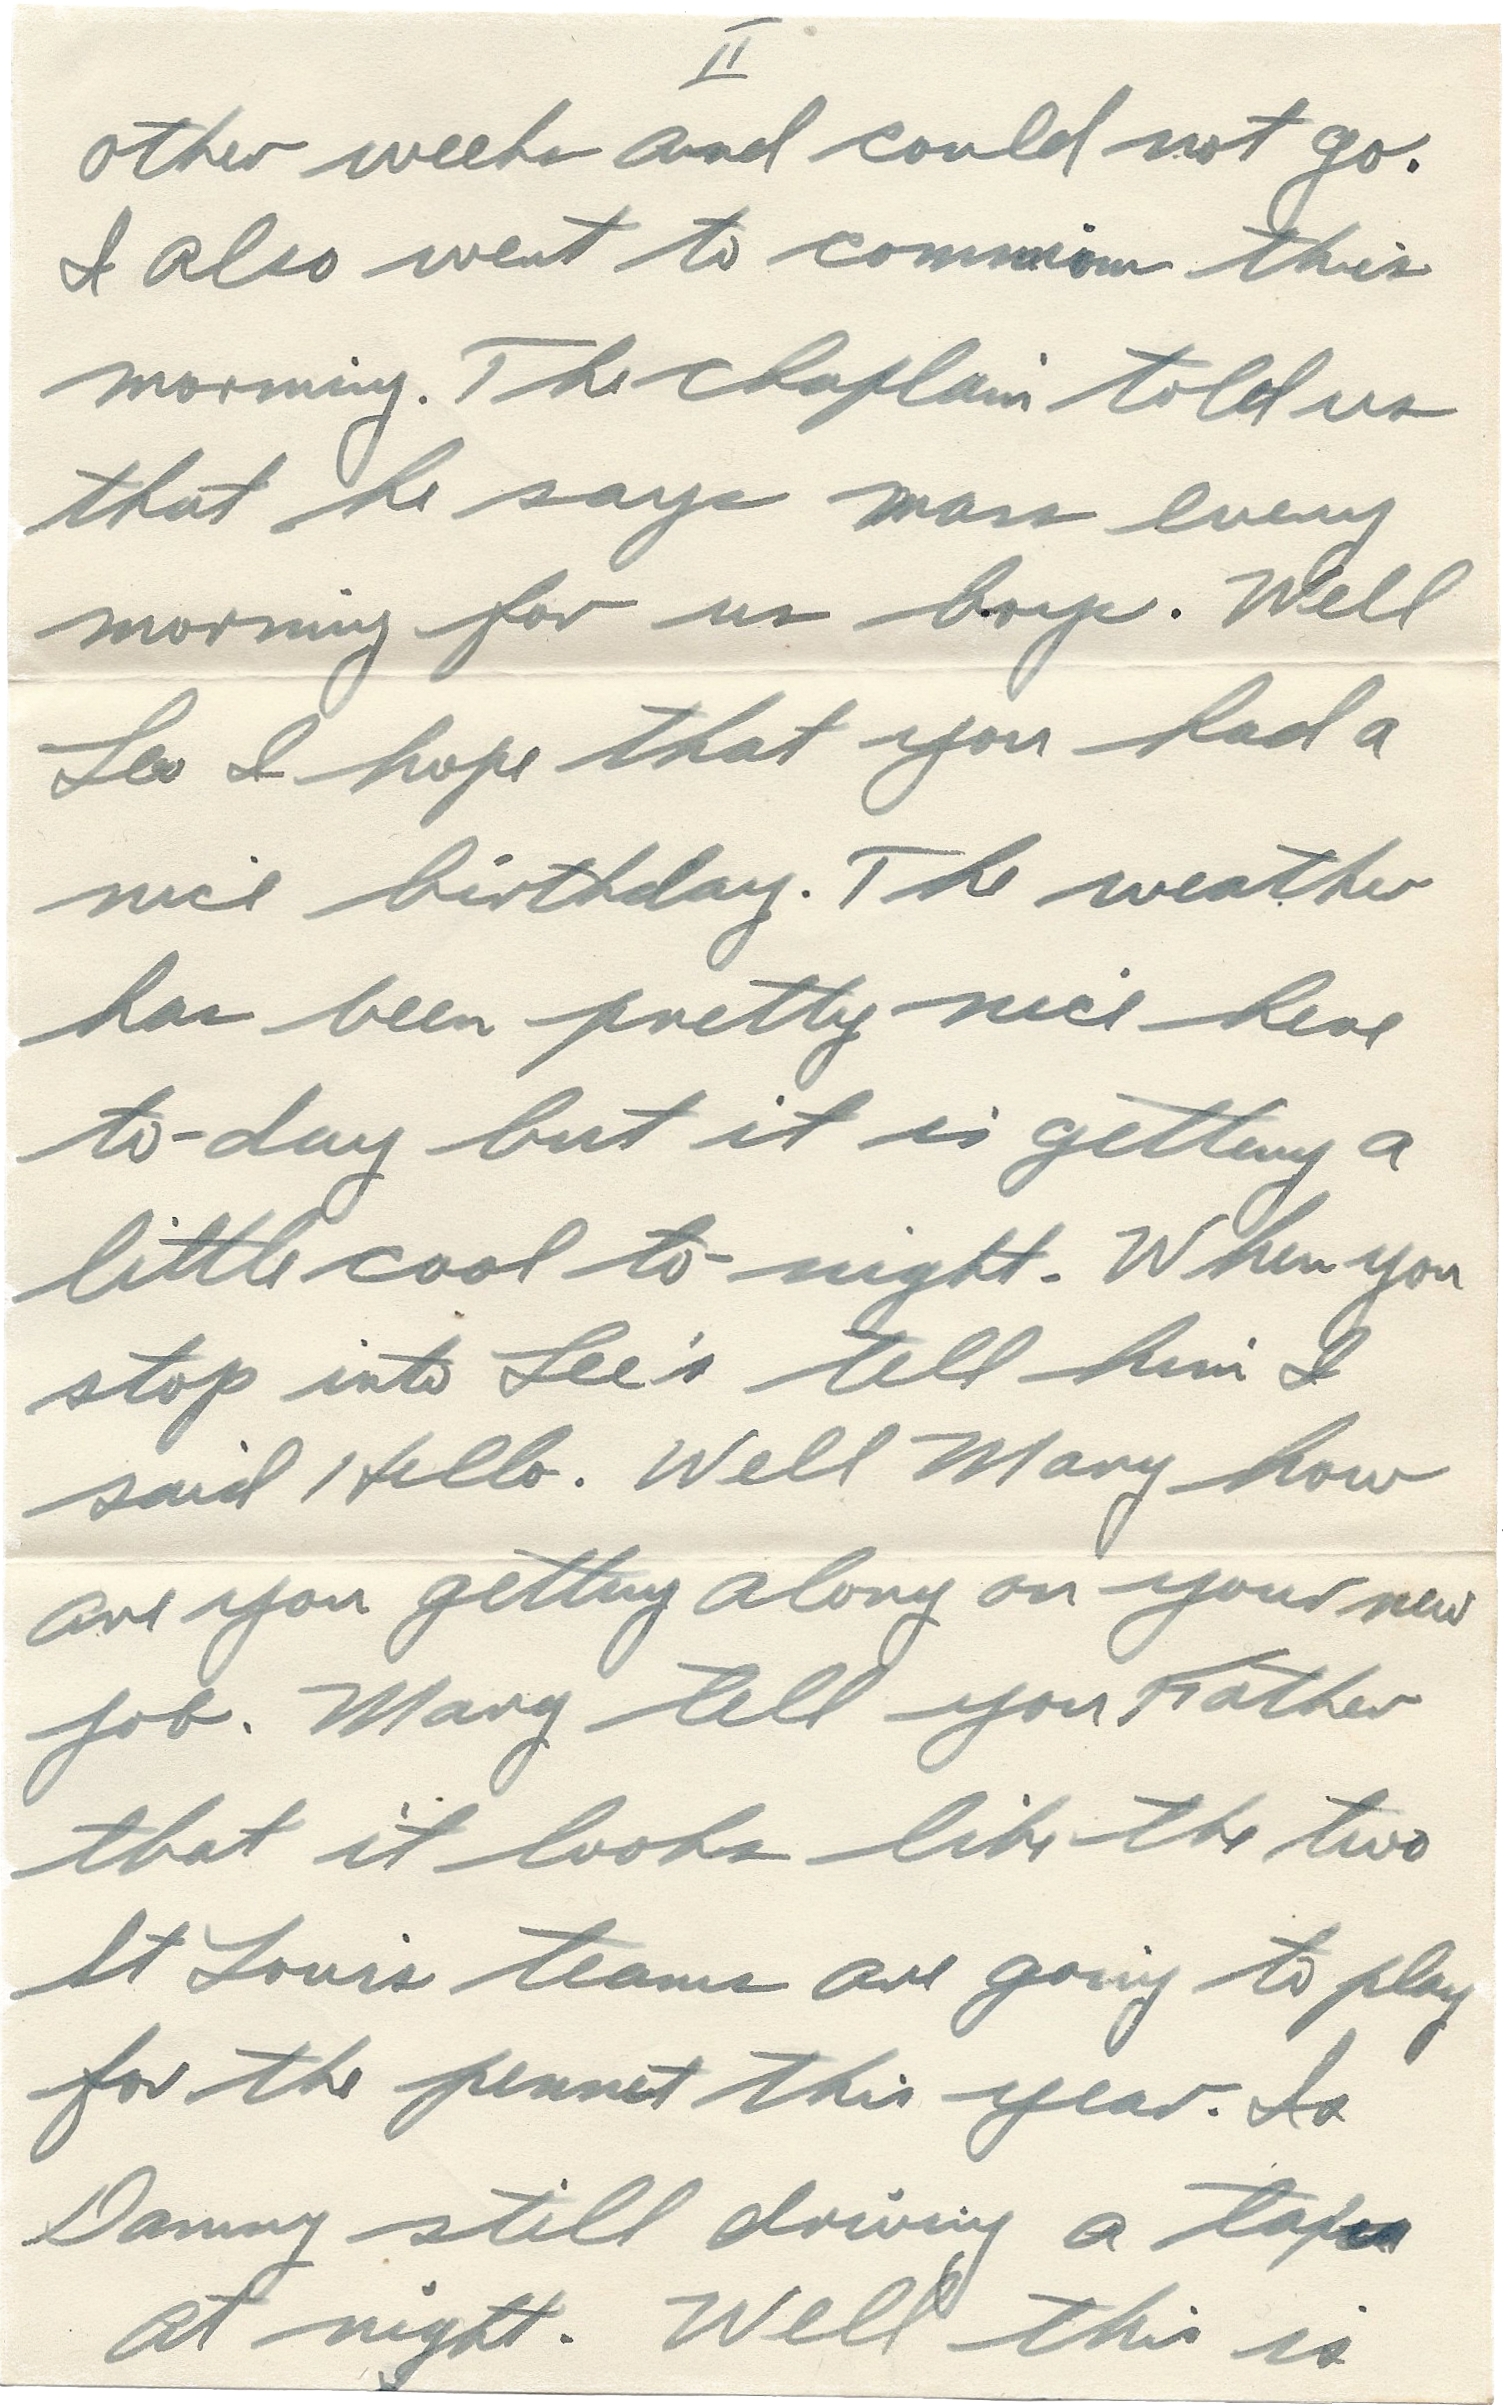 II
other weeks and could not go.
I also went to commion this
morning. The chaplain told us
that he says mass every
morning for us boys. Well
Leo I hope that you had a
nice birthday. The weather
has been pretty nice here
to-day but it is getting a
little cool to-night. When you
stop into Lee's tell him I
said Hello. Well Mary how
are you getting along on your new
job. Mary tell you Father
that it looks like the two
St Louis teams are going to play
for the pennet this year. Is
Danny still driving a
at night. Well this is